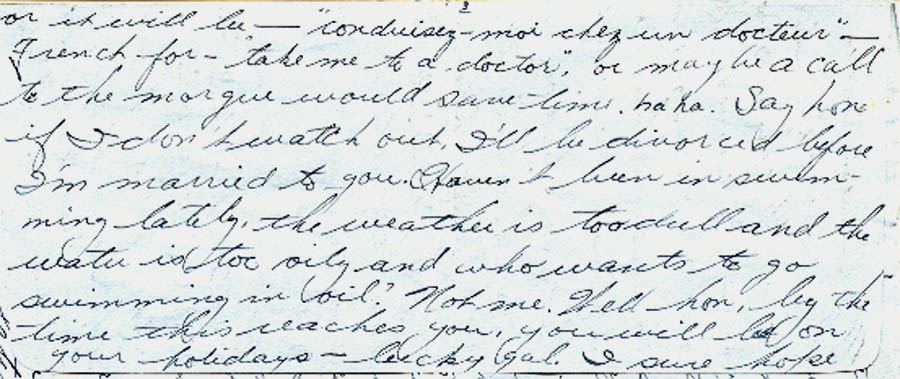 3
or it will be — "conduisez-moi chez un docteur" —
French for - "take me to a doctor", or maybe a call
to the morgue would save time. ha ha. Say hon
if I don't watch out, I'll be divorced before
I'm married to you. Haven't been in swim-
ming lately, the weather is too dull and the
water is too oily and who wants to go
swimming in oil? Not me. Well hon, by the
time this reaches you, you will be on
your holidays — lucky gal. I sure hope